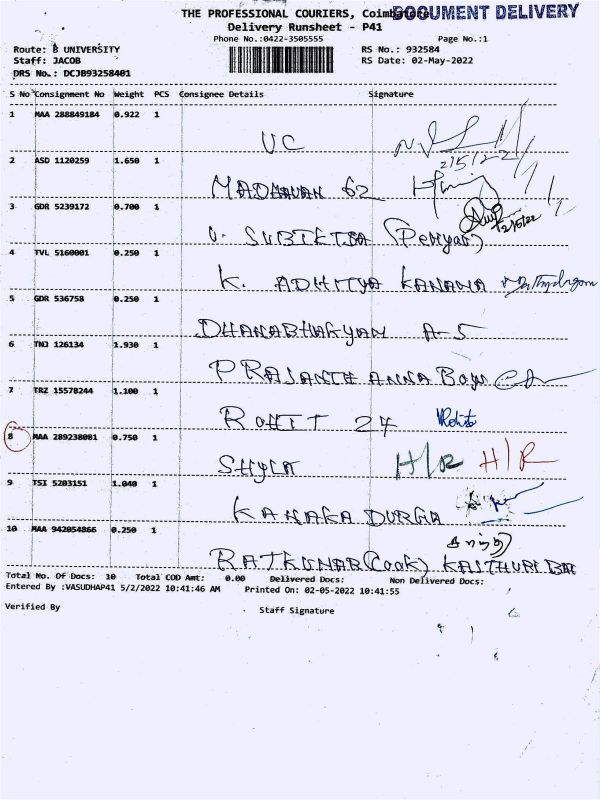 THE PROFESSIONAL COURIERS, Coimbatore
DOCUMENT DELIVERY
Delivery Runsheet - P41
Phone No.:0422-3505555 Page No.:1
Route: B UNIVERSITY RS No.: 932584
Staff: JACOB RS Date: 02-May-2022
DRS No.: DCJB93258401
S No Consignment No Weight PCS Consignee Details Signature
1 MAA 288849184 0.922 1
UC
2/5/22
2 ASD 1120259 1.650 1
MADHAVAN 62
3 GDR 5239172 0.700 1
12/5/22
V. SUBIKTBA (Periyar)
4 TVL 5160001 0.250 1
K. ADHITYA KANANA
5 GDR 536758 0.250 1
DHANABHAKYAM A-5
6 TNJ 126134 1.930 1
PRASANTH ANNA Boys
7 TRZ 15578244 1.100 1
ROHIT 24 Rohit
8 MAA 289238081 0.750 1
SHYLA H/R H/R
9 TSI 5203151 1.040 1
KANAKA DURGA
10 MAA 942054866 0.250 1
RAJKUMAR (Cook) KASTHURI BAI
Total No. Of Docs: 10 Total COD Amt: 0.00 Delivered Docs: Non Delivered Docs:
Entered By :VASUDHAP41 5/2/2022 10:41:46 AM Printed On: 02-05-2022 10:41:55
Verified By Staff Signature